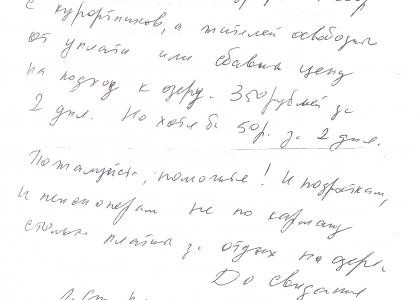 с курортников, а жителей освободить
от уплаты или сбавить цену
на подход к озеру. 350 рублей за
2 дня. Но хотя бы 50 р. за 2 дня.
Пожалуйста, помогите! И подросткам,
и пенсионерам не по карману
столько платить за отдых на озере.
До свидания